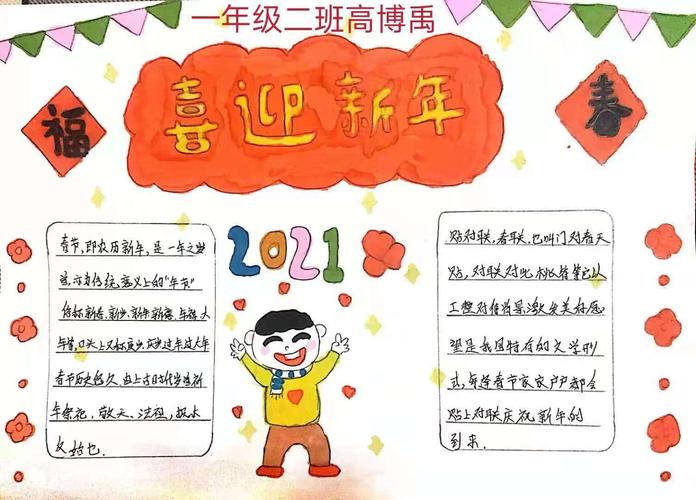 一年级二班高博禹
喜迎新年
福
春
2021
春节,即农历新年,是一年之岁
首,亦为传统意义上的"年节"
俗称新春、新岁、新年、新禧、年禧、大
年等,口头上又称度岁、庆岁、过年、过大年
春节历史悠久,由上古时代岁首祈
年祭祀、敬天、法祖,报本
贴对联,春联,也叫门对春天
贴,对联对
工整对偶
望是我国特有的文学形
式,每逢春节家家户户都会
贴上对联庆祝新年的
到来.